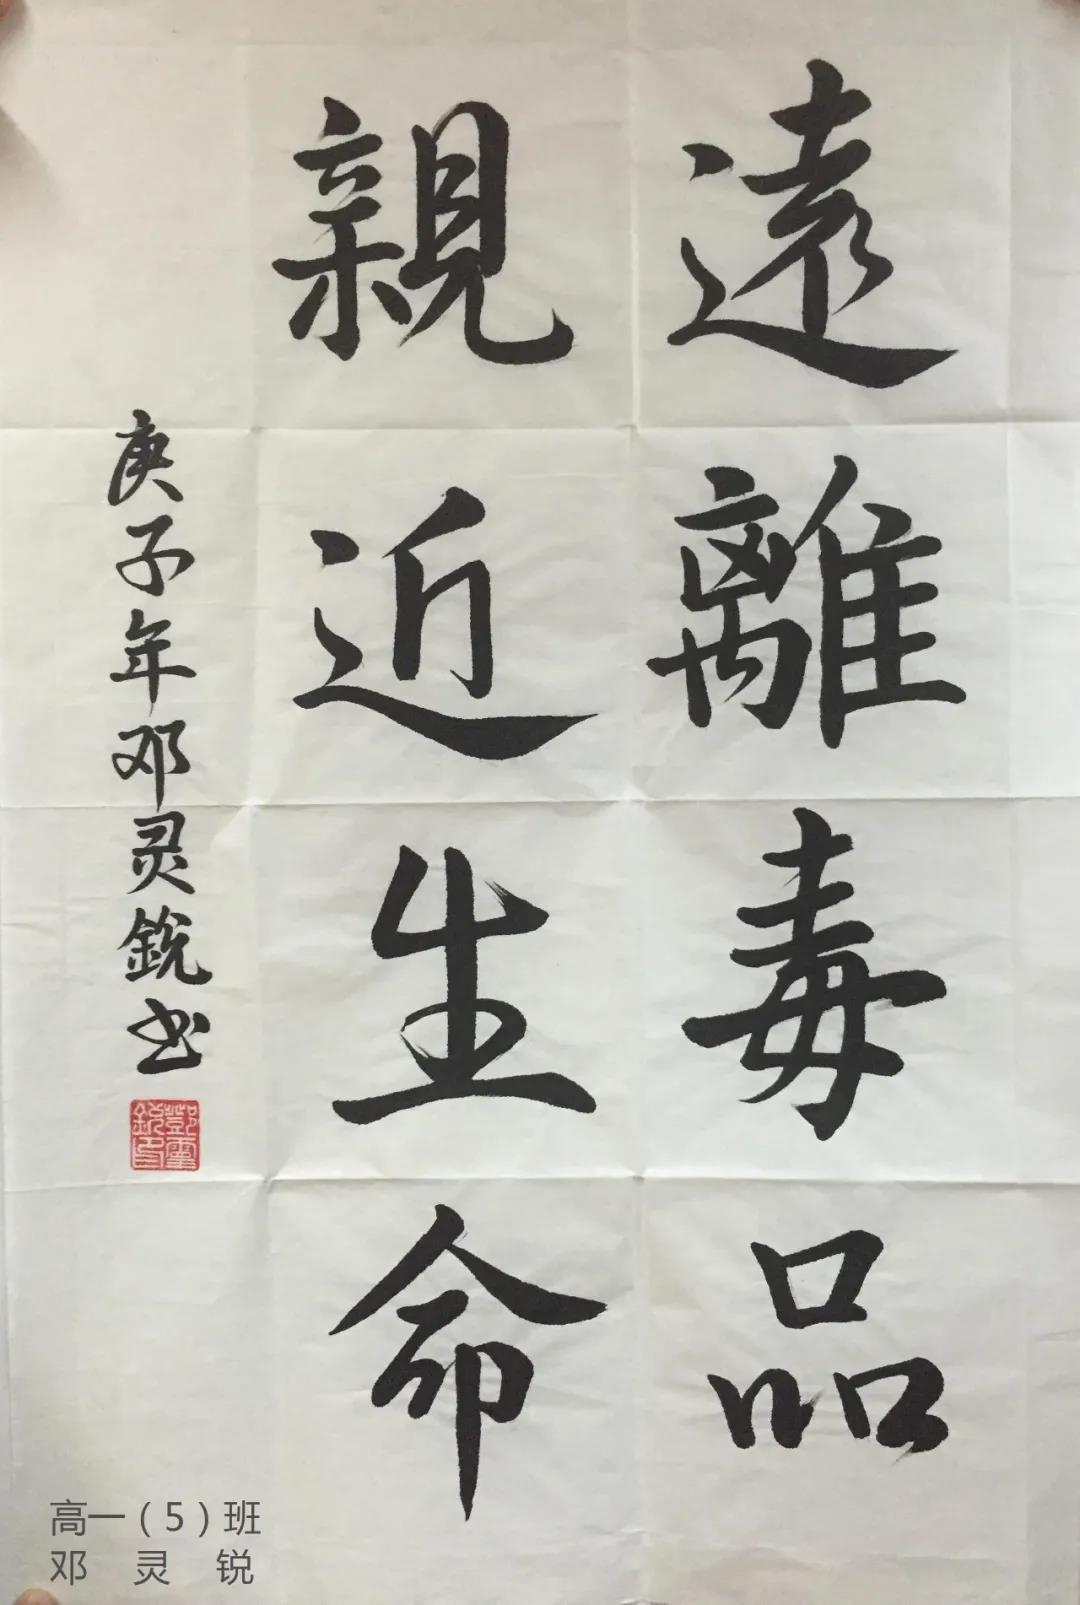 遠離毒品
親近生命
庚子年邓灵銳书
鄧靈銳印
高一（5）班
邓灵锐